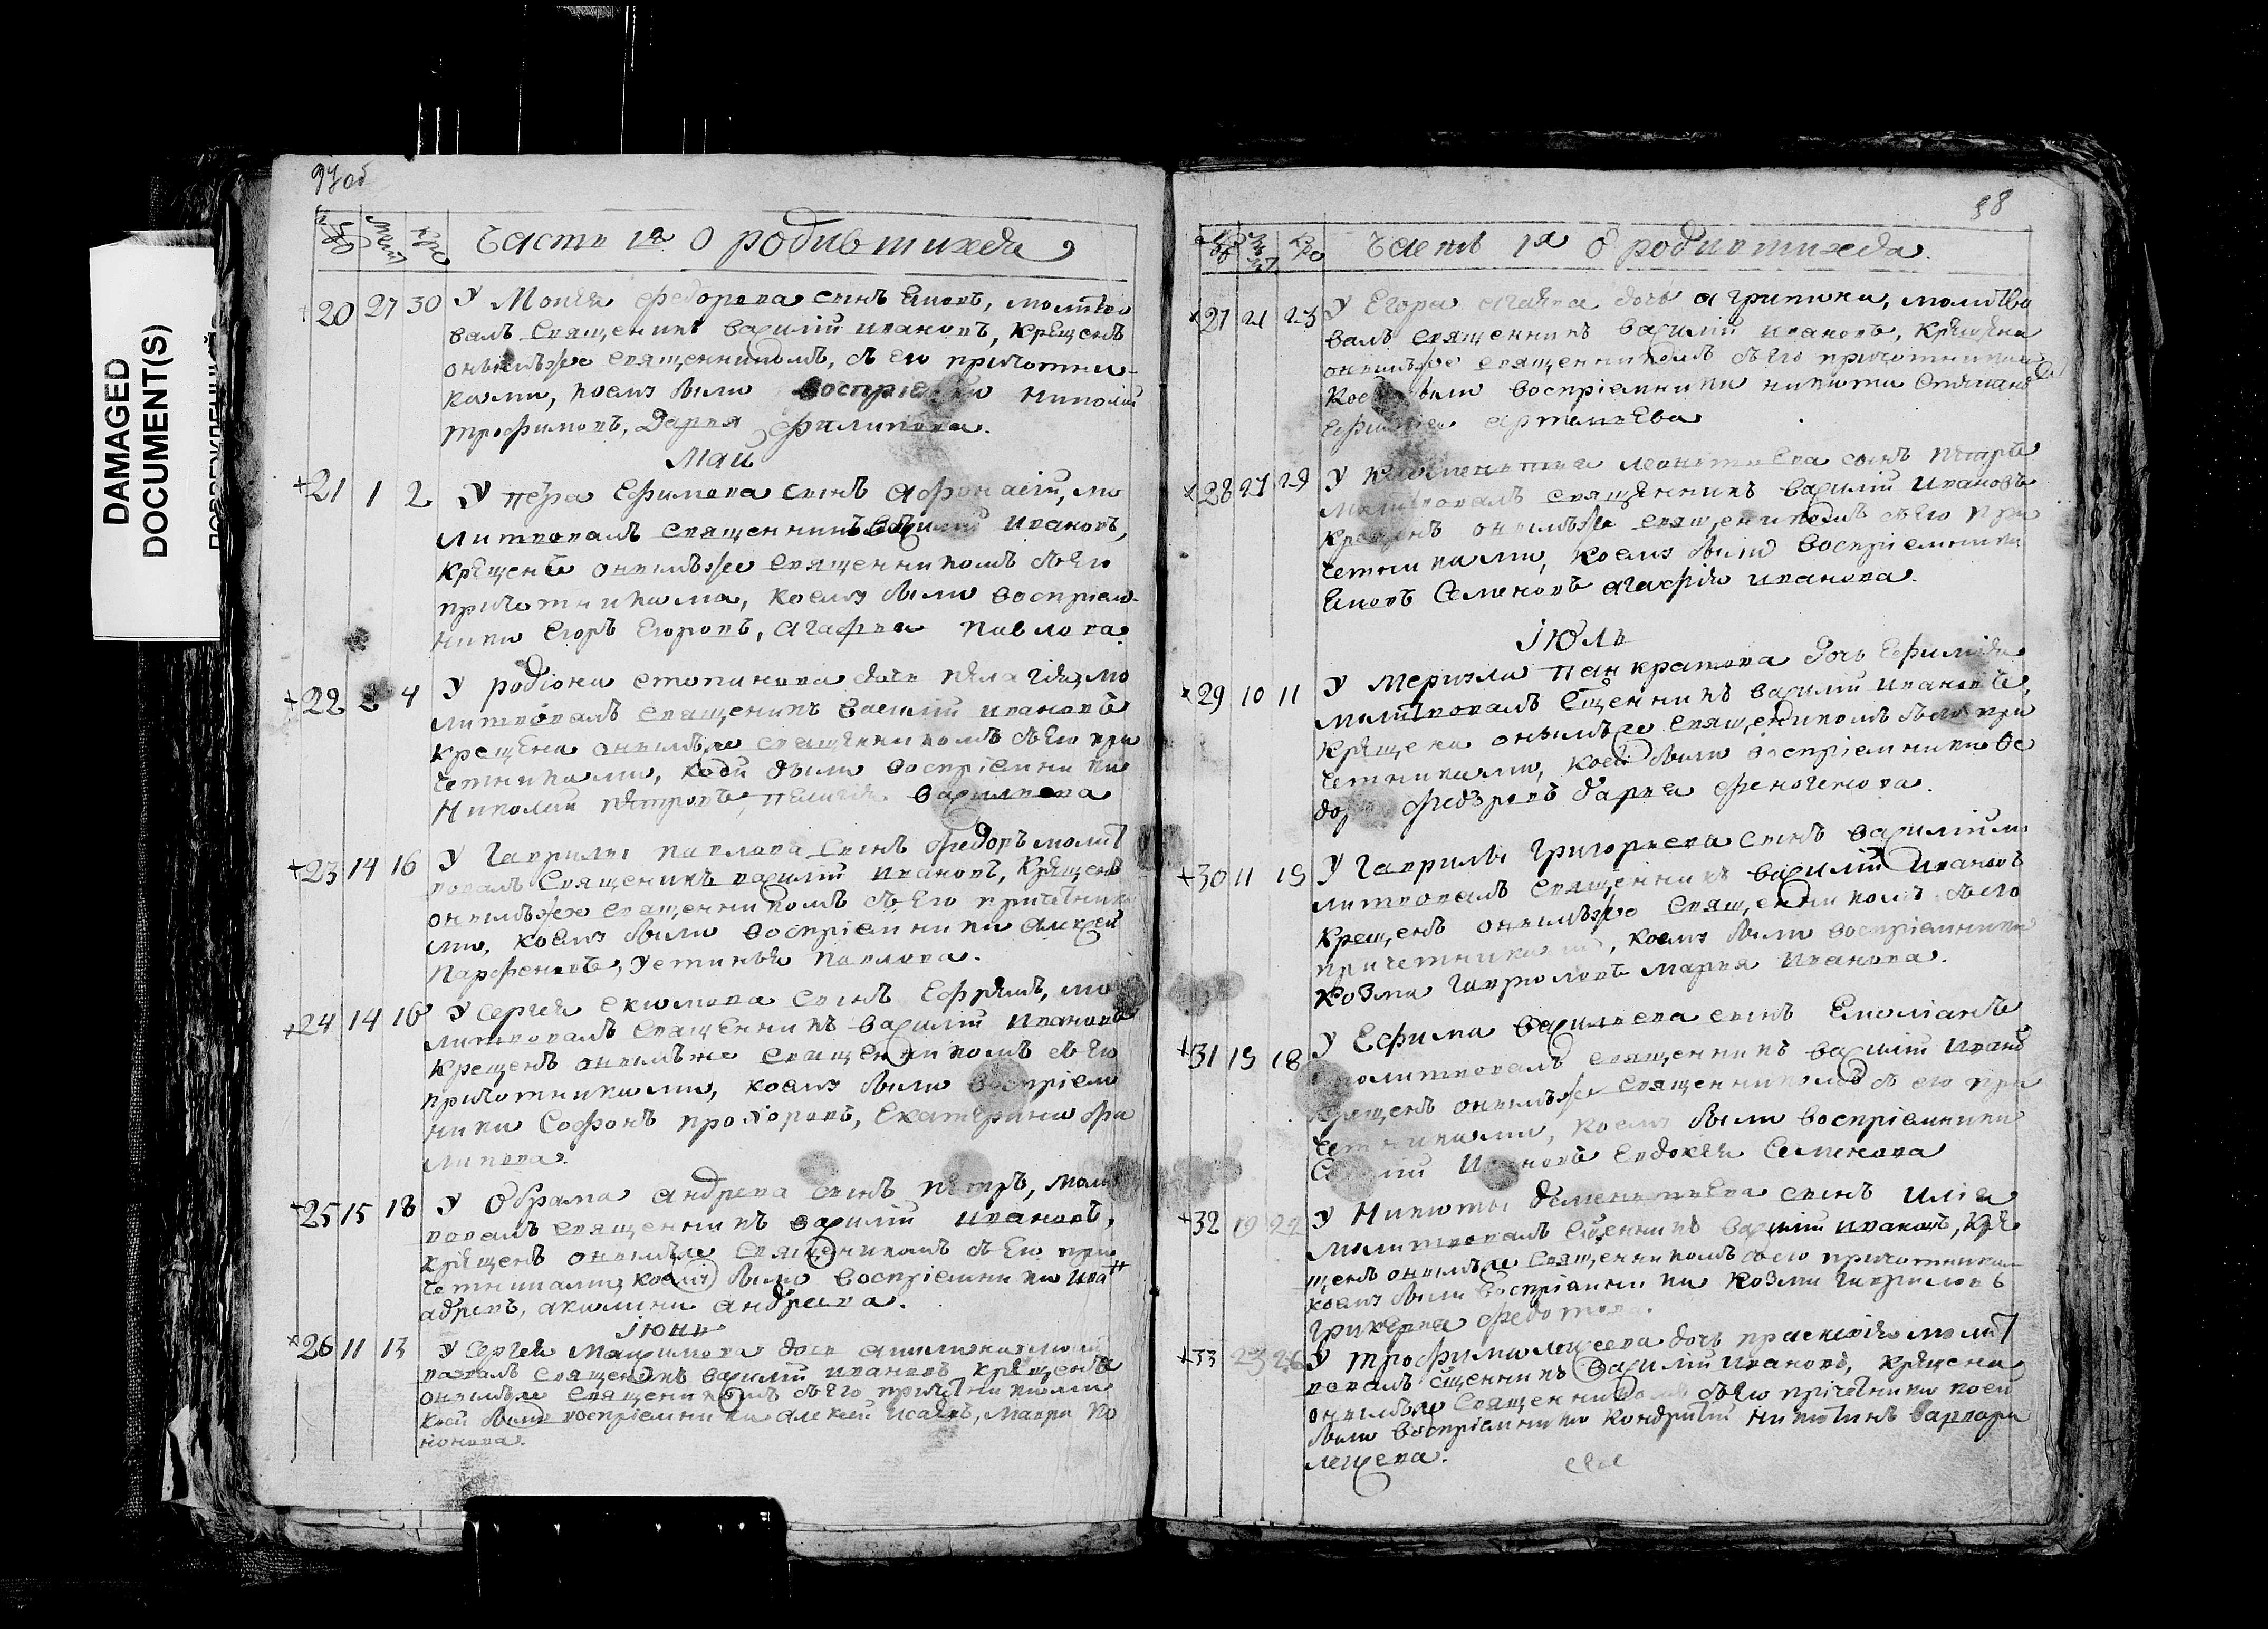 DAMAGED
DOCUMENT(S)
97об
Часть 1я о родившихся
20 27 30 У Моисея Федорова сынъ Яковъ, молитво
валъ священникъ Василій Ивановъ, крещенъ
онымъ же священникомъ, съ его причотни-
ками, коему были Николай
Трофимовъ, Дарья Филипова.
Май
21 1 2 У Петра Ефимова сынъ Афонасій, мо
литвовалъ священникъ Василий Ивановъ,
крещенъ онымъ же священникомъ съ его
причотниками, коему были восприем-
ники Егоръ Егоровъ, Агафья Павлова.
22 2 4 У Родіона Степанова дочь Пелагія, мо
литвовалъ священикъ Василій Ивановъ
крещена онымъ же священникомъ съ его при
четниками, коей были восприемники
Николай Петровъ, Пелагея Васильева
23 14 16 У Гаврилы Павлова сынъ Федоръ молит
вовалъ священикъ Василий Ивановъ, крещенъ
онымъ же священникомъ съ его причетника
ми, коему были восприемники Алексей
Парфеновъ, Устинья Павлова.
24 14 16 У Сергея Екимова сынъ Ефремъ, мо
литвовалъ священникъ Василий Ивановъ
крещенъ онымъ же священникомъ съ его
причотниками, коему были восприем
ники Софонъ Прохоровъ, Екатерина Фи
липова.
25 15 18 У Обрама Андреева сынъ Петръ, молит
вовалъ священникъ Василий Ивановъ,
крещенъ онымъ же священикомъ съ его при
четниками, коему были восприемники Иван
адревъ, Акилина Андреева.
Іюнь
26 11 13 У Сергея Максимова дочь
валъ священикъ Василий Ивановъ крещена
онымъ же священикомъ съ его причетниками
коей были восприемники Алексей Исаевъ, Мавра Ко
нонова.
98
Часть 1я о родившихся.
27 21 23 У Егора Агаева дочь Агрипина, молитво
валъ священникъ Василий Ивановъ, крещена
онымъ же священникомъ съ его причотниками
коей были восприемники Никита Степанов
Артемьева
28 27 29 У Климентия Леонтьева сынъ Петръ
молитвовалъ священникъ Василий Ивановъ
крещенъ онымъ же священикомъ съ его при
четниками, коему были восприемники
Яковъ Семеновъ Агафия Иванова.
Іюль
29 10 11 У Меркула Панкратова дочь Ефимия
молитвовалъ сщенникъ Василий Ивановъ,
крещена онымъ же священикомъ съ его при
четниками, коей были восприемники Фе
доръ Федоровъ Дарья Феногенова.
30 11 15 У Гаврилы Григорьева сынъ Василий мо
литвовалъ священникъ Василий Ивановъ
крещенъ онымъ же священникомъ съ его
причетниками, коему были восприемники
Козма Гавриловъ Марья Иванова.
31 15 18 У Ефима Васильева сынъ Емолианъ
молитвовалъ священникъ Василий Иванов
крещенъ онымъ же священникомъ съ его при
четниками, коему были восприемники
Ивановъ Евдокея Семенова
32 19 22 У Никиты Дементьева сынъ Илия
молитвовалъ сщенникъ Василий Ивановъ, кре
щенъ онымъ же священникомъ съ его причотниками
коему были восприемники Козма Гавриловъ
Федотова.
33 23 26 У Трофима Мосеева дочь Прасковия молит
вовалъ сщенникъ Василий Ивановъ, крещена
онымъ же священникомъ съ его причетники коей
были восприемники Кондратий Никитинъ Варвара